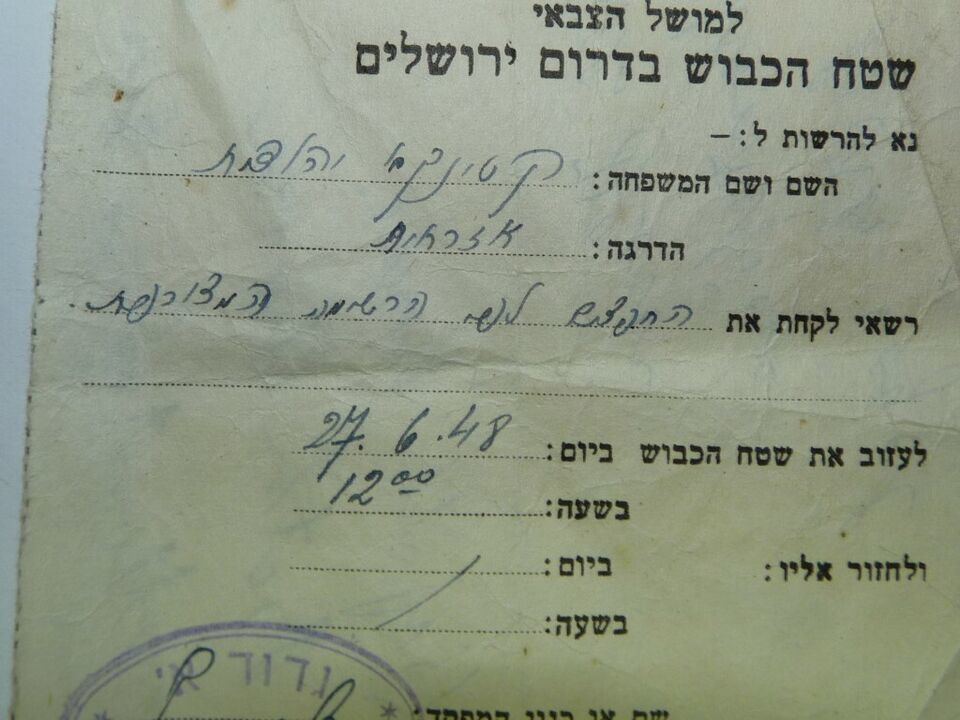 למושל הצבאי
שטח הכבוש בדרום ירושלים
נא להרשות ל: –
השם ושם המשפחה: יהודית
הדרגה: אזרחית
רשאי לקחת את החפצים לפי הרשימה המצורפת.
לעזוב את שטח הכבוש ביום: 27.6.48
בשעה: 12⁰⁰
ולחזור אליו: ביום: /
בשעה:
גדוד
שם או כנוי המפקד: